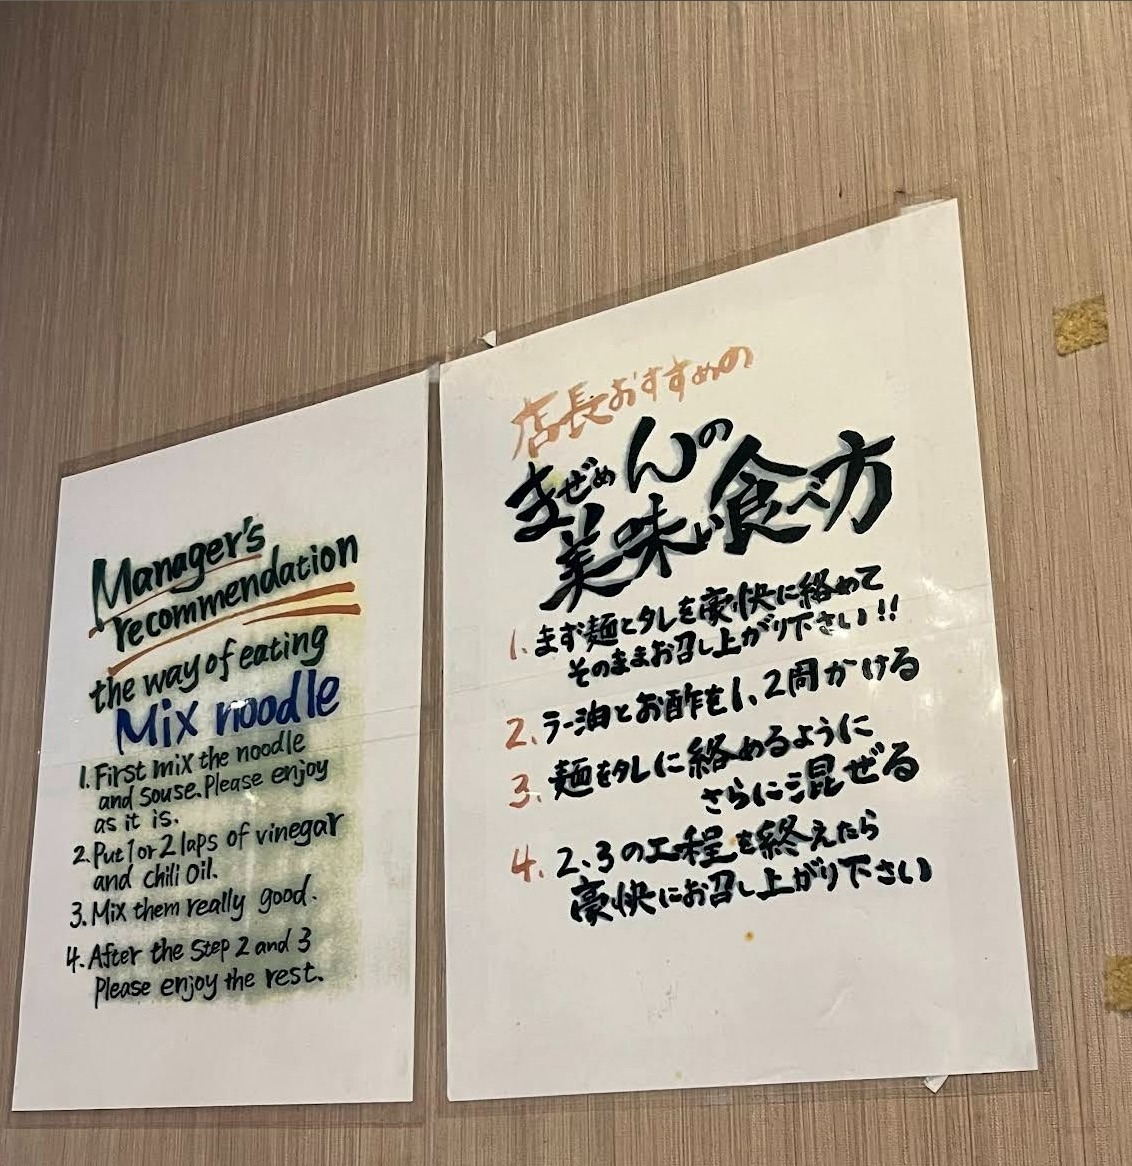 Manager's
recommendation
the way of eating
Mix noodle
1. First mix the noodle
and souse. Please enjoy
as it is.
2. Put 1 or 2 laps of vinegar
and chili oil.
3. Mix them really good.
4. After the step 2 and 3
Please enjoy the rest.
店長おすすめの
まぜめんの
美味い食べ方
1. まず麺とタレを豪快に絡めて
そのままお召し上がり下さい!!
2. ラー油とお酢を1、2周かける
3. 麺をタレに絡めるように
さらに混ぜる
4. 2、3の工程を終えたら
豪快にお召し上がり下さい